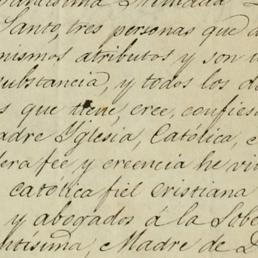 Santísima Trinidad
Santo, tres personas que
mismos atributos y son
substancia, y todos los
s que tiene, cree, confiesa
adre Yglesia, Católica,
era fée y creencia he
catolica fiel cristiana
y abogados á la
ntísima, Madre de D